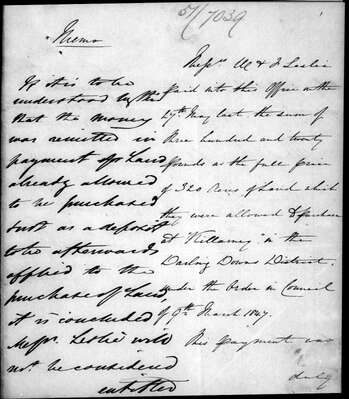 57/7039
"Memo
If it is to be
understood by this
that the money
was remitted in
payment for Land
already allowed
to be purchased
just as a deposit
to be afterwards
applied to the
purchase of Land,
it is concluded
Messrs Leslie will
not be considered
entitled
Messrs W & G Leslie
paid into this Office on the
27th May last the sum of
three hundred and twenty
pounds as the full price
of 320 Acres of Land which
they were allowed to purchase
at "Killarney" in the
Darling Downs District.
under the Order in Council
of 9th March 1847.
This payment was
duly